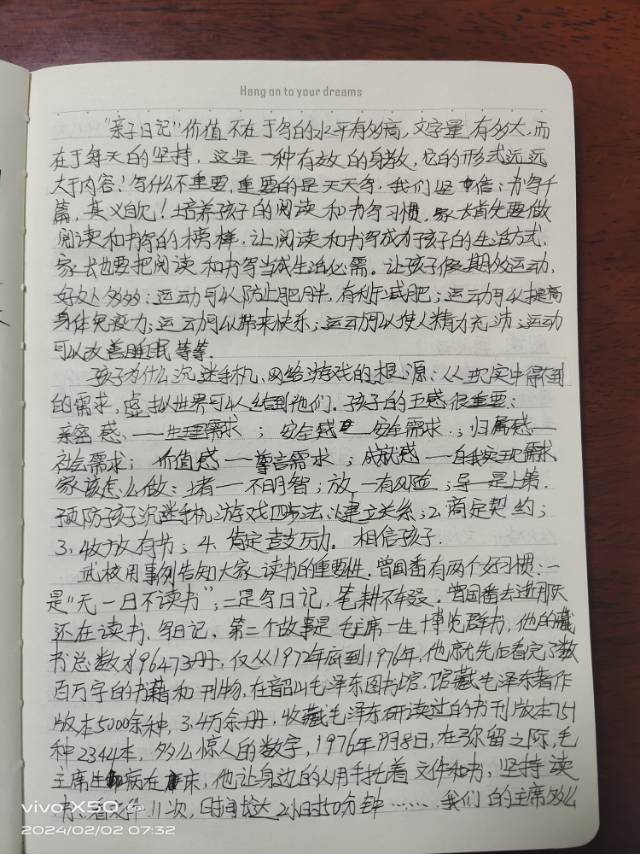 Hang on to your dreams
"亲子日记"价值不在于写的水平有多高，文字量有多大，而
在于每天的坚持，这是一种有效的身教，它的形式远远
大于内容！写什么不重要，重要的是天天写，我们坚信：书写千
篇，其义自见！培养孩子的阅读和书写习惯，家长首先要做
阅读和书写的榜样，让阅读和书写成为孩子的生活方式，
家长也要把阅读和书写当成生活必需。让孩子假期多运动，
好处多多：运动可以防止肥胖，有利于减肥；运动可以提高
身体免疫力；运动可以带来快乐；运动可以使人精力充沛；运动
可以改善睡眠等等。
孩子为什么沉迷手机、网络游戏的根源：从现实中得不到
的需求，虚拟世界可以给到他们。孩子的五感很重要：
亲密感——生理需求；安全感——安全需求；归属感—
社会需求；价值感—尊言需求；成就感—自我实现需求
家该怎么做：堵—不明智；放—有风险；导—是上策。
预防孩子沉迷手机游戏四步法：1.建立关系；2.商定契约；
3.收放有节；4.肯定鼓励。相信孩子。
武校用事例告知大家读书的重要性。曾国番有两个好习惯：一
是"无一日不读书"；二是写日记，笔耕不辍。曾国番去逝那天
还在读书、写日记。第二个故事是毛主席一生博览群书，他的藏
书总数为96473册，仅从1972年底到1976年，他就先后看完了数
百万字的书籍和刊物，在韶山毛泽东图书馆，馆藏毛泽东著作
版本5000余种，3.4万余册，收藏毛泽东研读过的书刊版本751
种2344本，多么惊人的数字，1976年9月8日，在弥留之际，毛
主席生病在床，他让身边的人用手托着文件和书，坚持读
书、看文件11次，时间长达2小时50分钟……我们的主席多么
vivo X50
2024/02/02 07:32